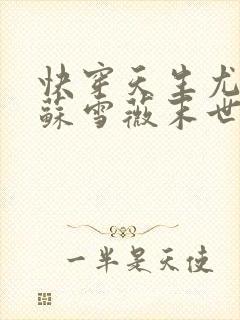 快穿天生尤
蘇雪薇末世
一半是天使